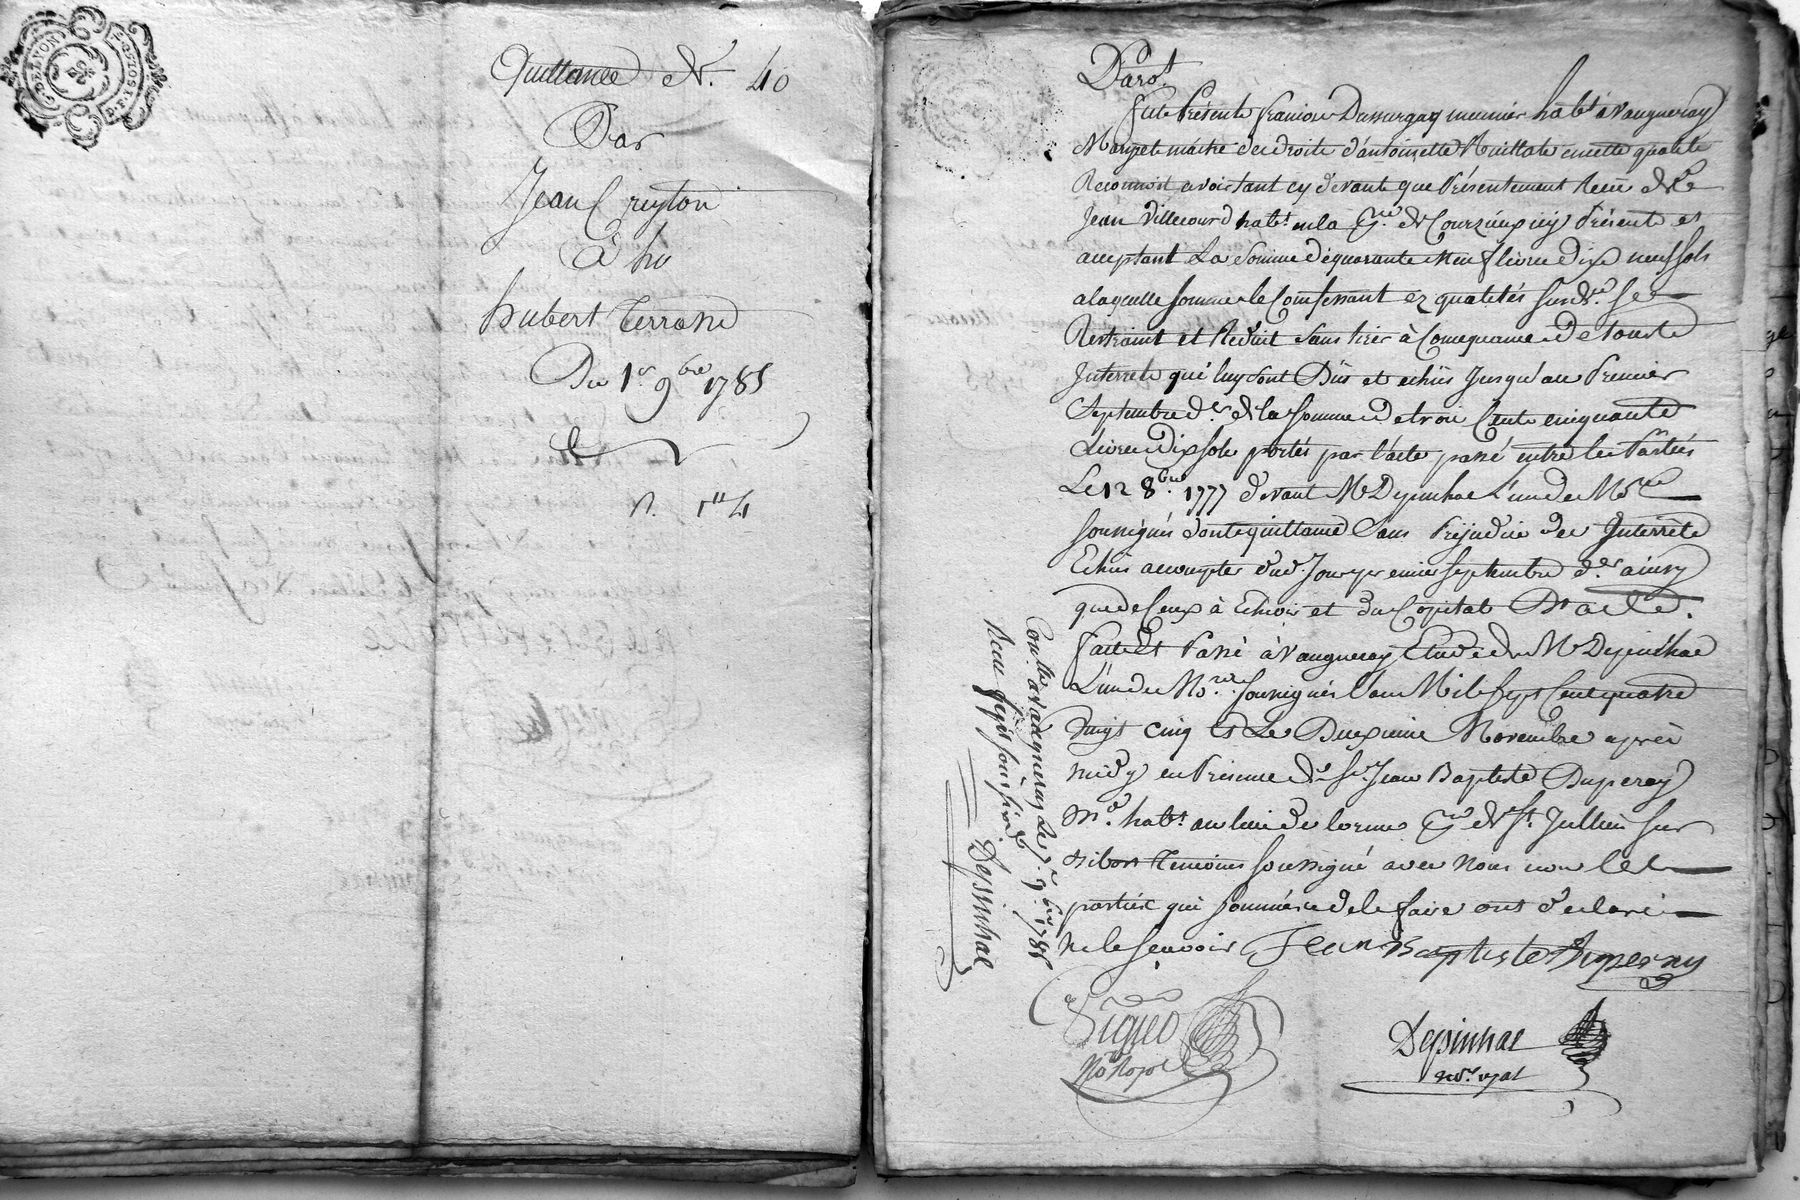 Quittance N. 40
Par
Jean Creyton
à
hubert Terrasse
Du 1er 9bre 1785
n. 4
Parot
fut Présent françois Dussurgey meunier habt à Vaugneray
Mary et maitre des droits d'antoinette en cette qualité
Reconnoit avoir tant cy devant que Présentement Reçu de Sr
Jean Villecourd habt en la de Courzieu icy Présent et
acceptant La Somme de quarante Neuf livres dix neuf sols
a laquelle somme le Confessant ez qualités susde se
Restraint et Reduit sans tirer à Consequence de touts
Interrets qui luy sont Dûs et echûs Jusqu'au Premier
Septembre der de la somme de trois Cents cinquante
Livres dix sols portés par l'acte passé entre les Parties
Le 12 8bre 1777 devant Me Depinhac L'un des Nores
soussignés dont quittance Sans Préjudice des Interrêts
Echus acompter dud. Jour premier septembre der ainsy
que de Ceux à Echoir et du Capital
fait Et Passé à Vaugneray Etude de Me Depinhac
L'un des Nores soussignés L'an Mil sept Cent quatre
vingt cinq Et Le Deuxieme Novembre après
midy en Présence de Sr Jean Baptiste Duperay
habt au lieu de de St Jullien sur
bibost temoins soussigné avec nous non les
parties qui sommées de le faire ont declaré
ne le scavoir Jean Baptiste Duperay
Depinhac
Nore royal
Conllé à Vaugneray Le 9bre 1785
Reçu Depinhac